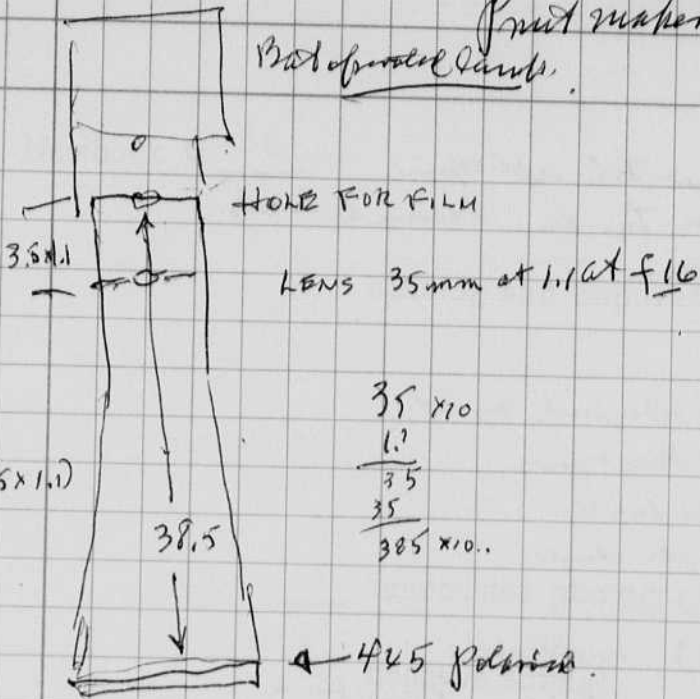 Print maker
Bat operated lamp.
HOLE FOR FILM
3.5x1.1
LENS 35mm at 1.1 at f16
35 x10
1.1
35
35
385 x10..
5 x 1.1)
38.5
4x5 Polaroid.